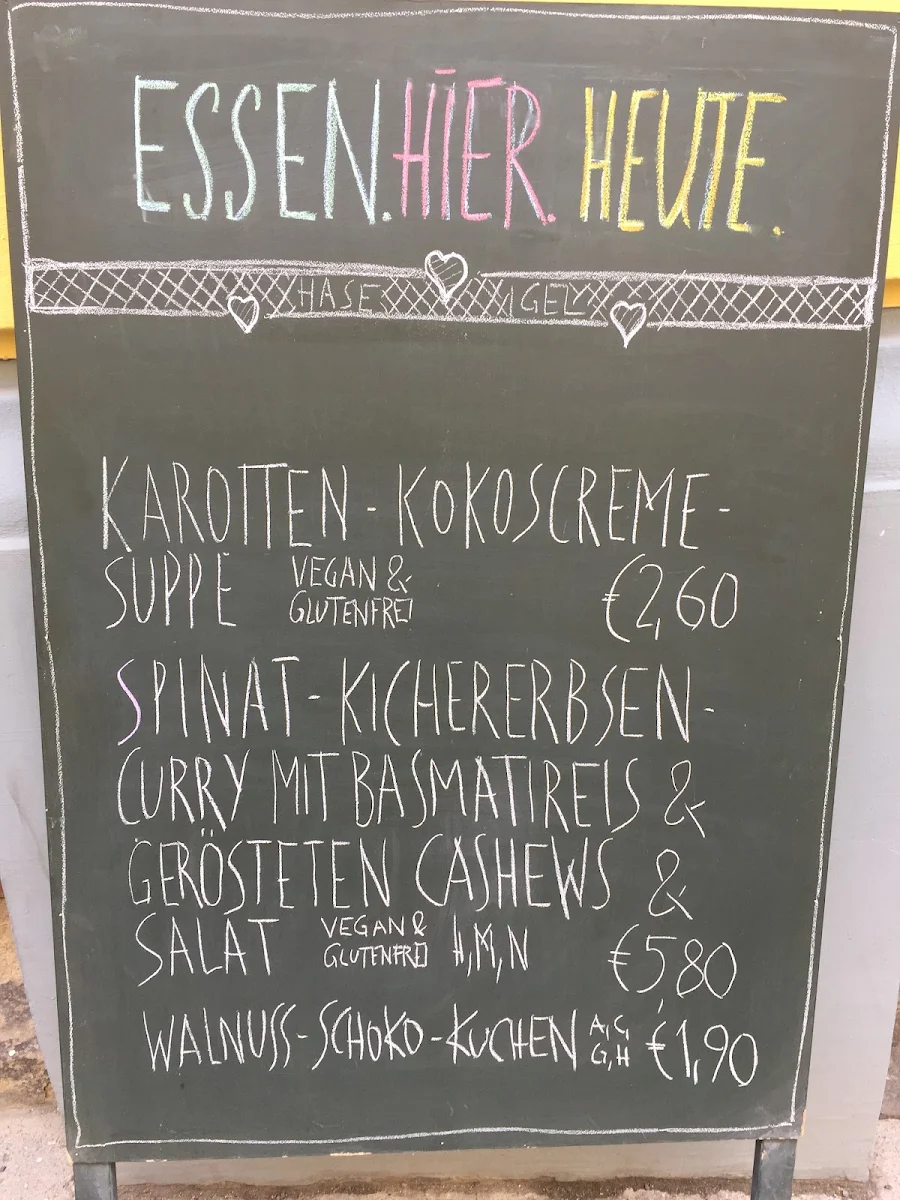 ESSEN. HIER. HEUTE.
HASE IGEL
KAROTTEN - KOKOSCREME -
SUPPE VEGAN & GLUTENFREI €2,60
SPINAT - KICHERERBSEN -
CURRY MIT BASMATIREIS &
GERÖSTETEN CASHEWS &
SALAT VEGAN & GLUTENFREI H,M,N €5,80
WALNUSS-SCHOKO-KUCHEN A,C, G,H €1,90